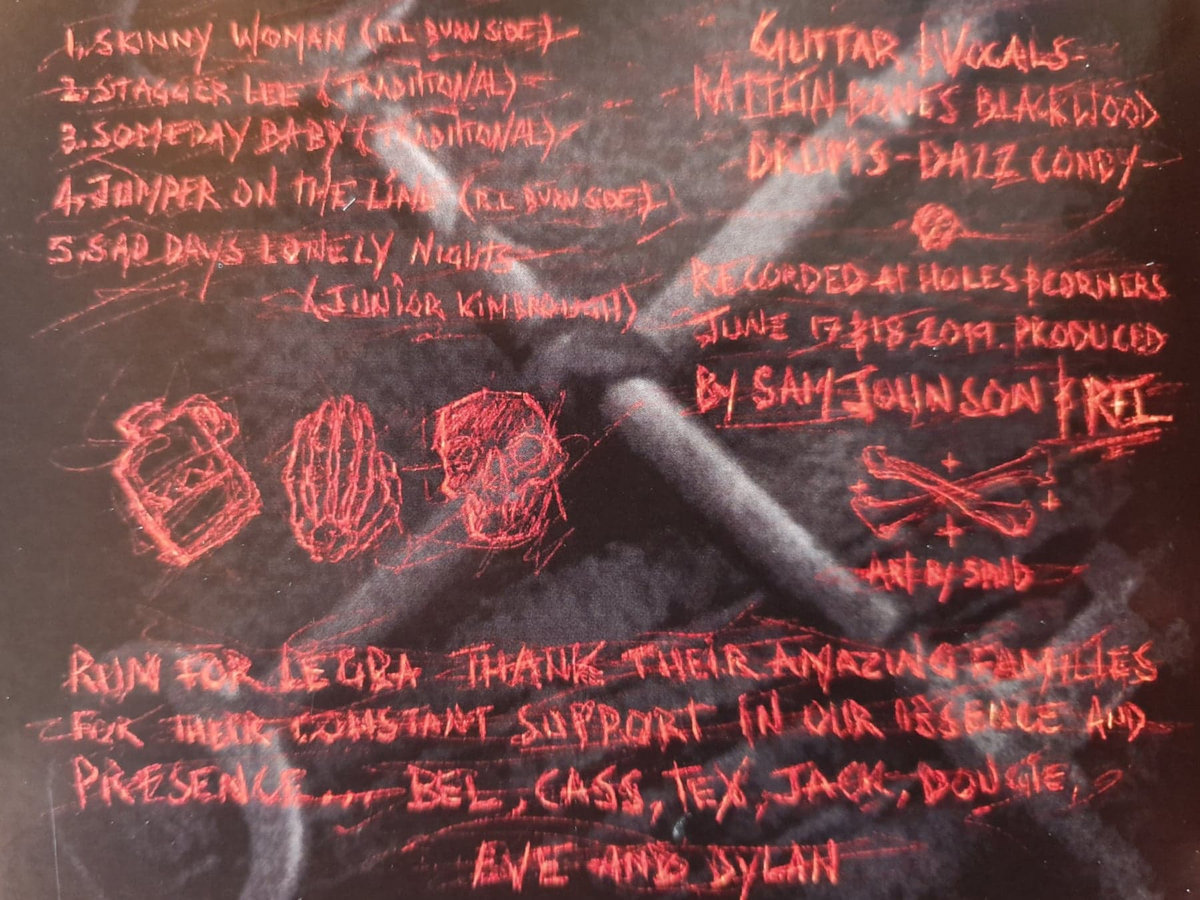 1. SKINNY WOMAN (R.L BURNSIDE)
2. STAGGER LEE (TRADITIONAL)
3. SOMEDAY BABY (TRADITIONAL)
4. JUMPER ON THE LINE (R.L BURNSIDE)
5. SAD DAYS LONELY NIGHTS
(JUNIOR KIMBROUGH)
GUITAR & VOCALS-
KAITLIN BONES BLACKWOOD
DRUMS-DAZZ CONDY
RECORDED AT HOLES & CORNERS
JUNE 17 & 18. 2019. PRODUCED
BY SAM JOHNSON &
ART BY
RUN FOR LEGBA THANK THEIR AMAZING FAMILIES
FOR THEIR CONSTANT SUPPORT IN OUR AND
PRESENCE... BEL, CASS, TEX, JACK, DOUGIE,
EVE AND DYLAN